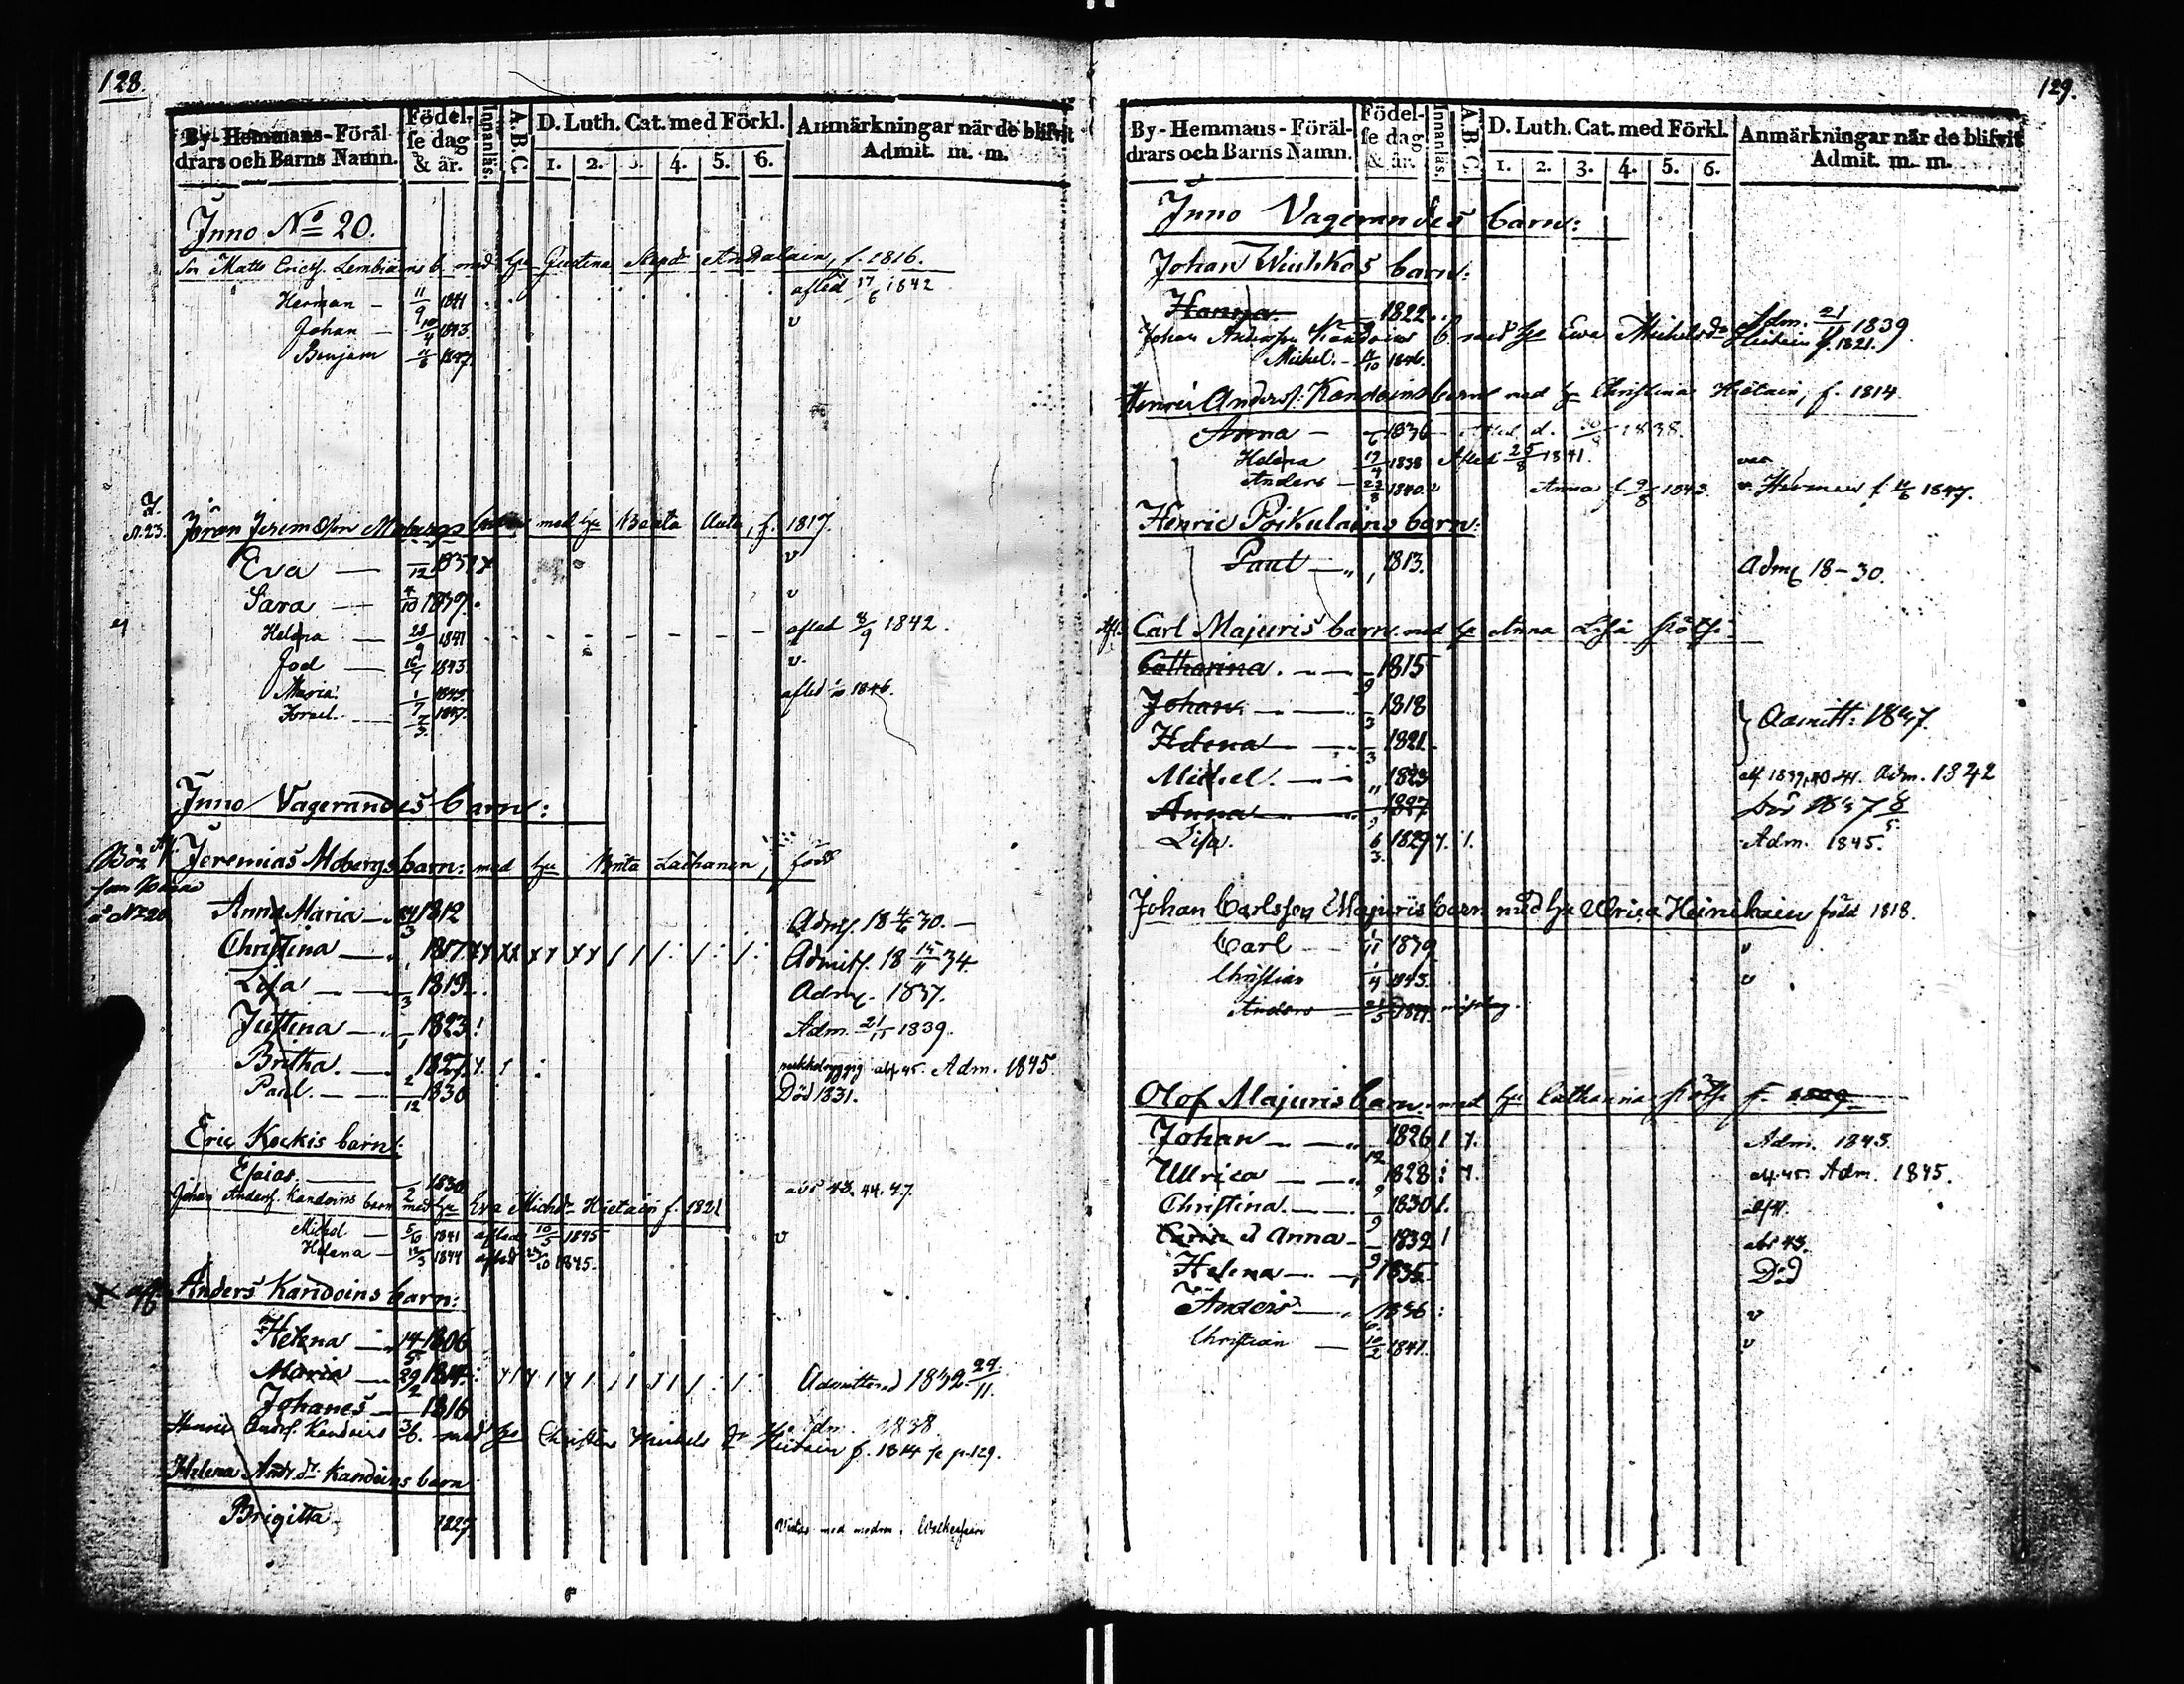 128.
By-Hemmans-Föräl-
drars och Barns Namn.
Födel-
se dag
& år.
Innanläs.
A.B.C.
D. Luth. Cat. med Förkl.
1. 2. 3. 4. 5. 6.
Anmärkningar när de blifvit
Admit. m. m.
Inno No 20.
Matts Ericss. Lembiäins b. med hu Justina f. 1816.
Herman - 11/9 1841 afled 17/6 1842
Johan - 10/4 1843 v
Benjam 1847
N.23. Jöran Jerem Moberga med hu Beata f. 1817.
Eva — /12 1837 v
Sara — 4/10 1839 v
Helena — 28/9 1841 afled 8/9 1842.
Jod — 16/4 1843 v.
Maria 1/7 1845 afled 1846.
Israel. 7/3 1847.
Inno Vagerandes barn:
Jeremias Mobergs barn: med hu Brita Lachanen, född
No 20
Anna Maria 24/3 1812 Admit. 18 30.
Christina 1 1817 Admitt. 18 15/11 34.
Lisa 3 1819 Adm. 1837.
Justina 1 1823 Adm. 21/11 1839.
Britha. 2 1827 Adm. 1845.
Paul. 12 1830 Död 1831.
Eric Kockis barn:
Esaias 2 1830 abs 43. 44. 47.
Johan Anderss. Kandoins barn med hu Eva Michdr Hietain f. 1821
Michel — 5/10 1841 afled 10/5 1845 v
Helena — 12/3 1844 afled 1845.
Anders Kandoins barn:
Helena 14/5 1806
Maria 29/2 1814 Admitterad 1832. 29/11.
Johanes 3 1816 Adm. 1838.
Henric Anderss. Kandoins b. med hu Christina Michels dr Hietain f. 1814 se p. 129.
Helena Andr. dr Kandoins barn
Brigitta 1827.
129.
By-Hemmans-Föräl-
drars och Barns Namn.
Födel-
se dag
& år.
Innanläs.
A.B.C.
D. Luth. Cat. med Förkl.
1. 2. 3. 4. 5. 6.
Anmärkningar när de blifvit
Admit. m. m.
Inno Vagerandes barn:
Johan Wiuhkos barn:
Hanna. 1822 Adm. 21/11 1839
Johan Anderssn Kandoins b med hu Eva Michelsdr Hietain f. 1821.
Michel. - 11/10 1846.
Henric Anderss: Kandoins barn med hu Christina Hietain, f. 1814
Anna - 6 1836 Afled d. 30/8 1838.
Helena 17/4 1838 Afled 25/8 1841.
Anders - 22/8 1840. Anna f. 9/8 1843. v. Herman f. 1847.
Henric Poikulains barn:
Paul 1 1813. Adm 18-30.
Carl Majuris barn. med hu Anna Lisa
Catharina. 9 1815
Johan. 3 1818
Helena 3 1821
} Admitt: 1837.
Michel. 1823 abs 1839, 40-41. Adm. 1842
Anna 1827 Död 1837
Lisa. 6/3 1829 Adm. 1845.
Johan Carlsson Majuris barn med hu Ulrica Heinikain född 1818.
Carl 1/11 1839 v
Christian 1/4 1845. v
Anders 21/5 1847
Olof Majuris barn. med hu Catharina f. 1809
Johan 12 1826 Adm. 1843.
Ullrica 9 1828 abs. 45. Adm. 1845.
Christina. 9 1830
Anna 9 1832 abs 43.
Helena 1 1835 Död
Anders 6 1836 v
Christian 10/2 1841. v